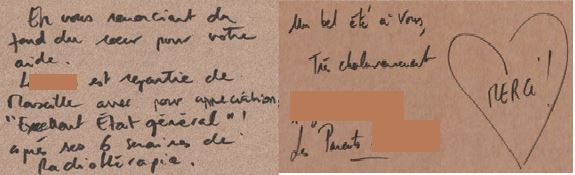 En vous remerciant du
fond du cœur pour votre
aide.
L est repartie de
Marseille avec pour appréciation
"Excellent État général" !
après ses 6 semaines de
Radiothérapie.
Un bel été à vous,
Très chaleureusement
"Les" Parents
MERCI !